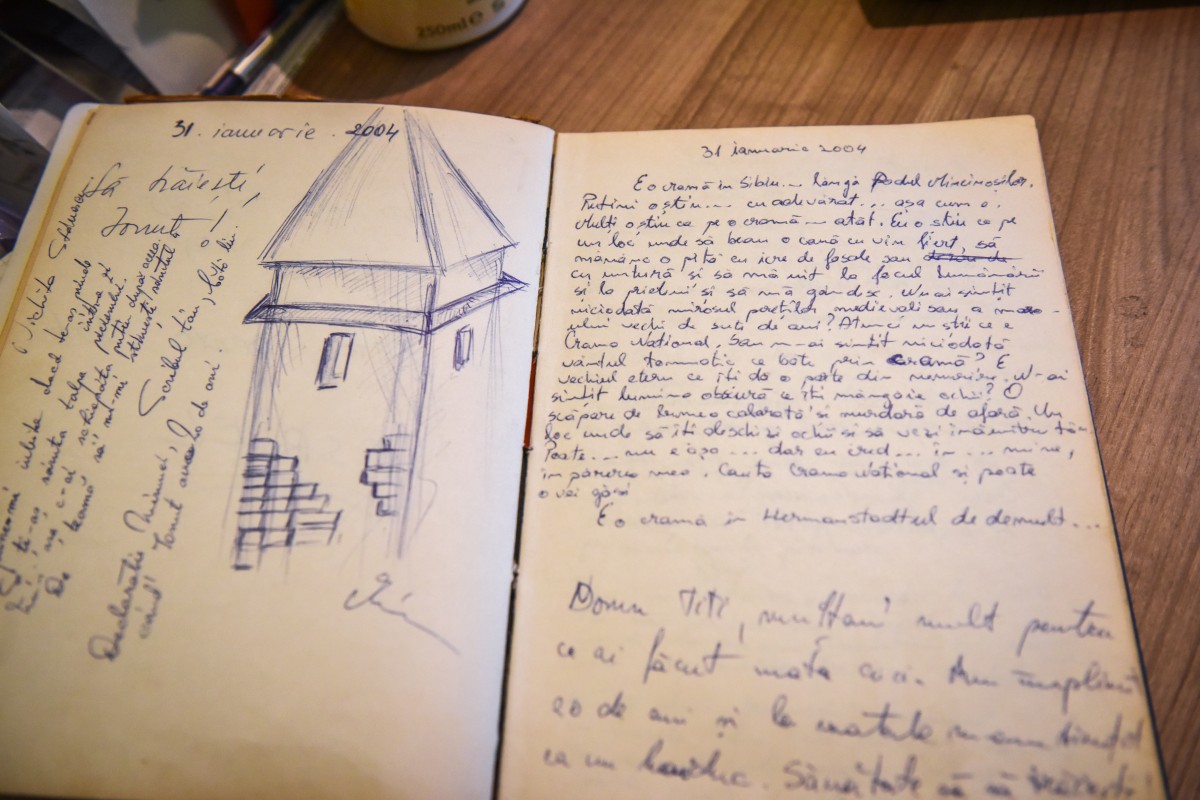 250ml
31. ianuarie. 2004
Să trăiești,
Ionuț!
Nichita Stănescu
Spune-mi iubito dacă te-aș prinde
și ți-aș săruta talpa
De
teamă să nu-mi strivești sărutul
Declarația Mirunei, Scribul tău, bătă lu.
când Ionuț avea 20 de ani.
31 ianuarie 2004
E o cramă în Sibiu... lângă Podul Mincinoșilor.
Puțini o știu... cu adevărat... așa cum e.
Mulți o știu ca pe o cramă... atât. Eu o știu ca pe
un loc unde să beau o cană cu vin fiert, să
mănânc o pită cu icre de fasole sau
cu untură și să mă uit la focul lumânării
și la prieteni și să mă gândesc. N-ai simțit
niciodată mirosul porților medievale sau a
vechi de sute de ani? Atunci nu știi ce e
Crama Național. Sau n-ai simțit niciodată
vântul ce bate prin cramă? E
vechiul etern ce îți dă o parte din nemurire. N-ai
simțit lumina obscură ce îți mângâie ochii? O
scăpare de lumea colorată și murdară de afară. Un
loc unde să îți deschizi ochii și să vezi înăuntru tău
Poate... nu e așa... dar eu cred... în... mine,
în părerea mea. Caută Crama Național și poate
o vei găsi
E o cramă în Hermannstadtul de demult...
Domnu Titi, mulțam' mult pentru
ce ai făcut mata aici. Am împlinit
20 de ani și la matale m-am simțit
ca un haiduc. Sănătate să să trăiești!